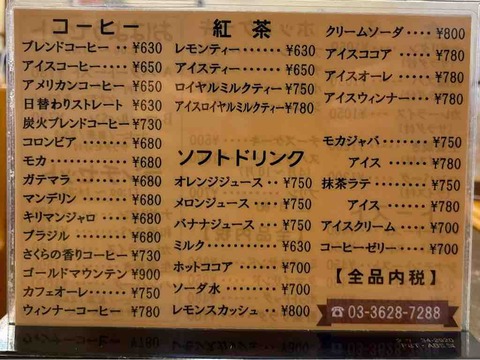 コーヒー
ブレンドコーヒー‥¥630
アイスコーヒー‥‥¥650
アメリカンコーヒー¥650
日替わりストレート¥630
炭火ブレンドコーヒー¥730
コロンビア‥‥‥‥¥680
モカ‥‥‥‥‥‥‥¥680
ガテマラ‥‥‥‥‥¥680
マンデリン‥‥‥‥¥680
キリマンジャロ‥‥¥680
ブラジル‥‥‥‥‥¥680
さくらの香りコーヒー¥730
ゴールドマウンテン¥900
カフェオーレ‥‥‥¥750
ウィンナーコーヒー¥780
紅茶
レモンティー‥‥‥¥630
アイスティー‥‥‥¥650
ロイヤルミルクティー¥750
アイスロイヤルミルクティー¥780
ソフトドリンク
オレンジジュース‥¥750
メロンジュース‥‥¥750
バナナジュース‥‥¥750
ミルク‥‥‥‥‥‥¥630
ホットココア‥‥‥¥700
ソーダ水‥‥‥‥‥¥700
レモンスカッシュ‥¥800
クリームソーダ‥‥¥800
アイスココア‥‥‥¥780
アイスオーレ‥‥‥¥780
アイスウィンナー‥¥780
モカジャバ‥‥‥‥¥750
アイス‥‥‥¥780
抹茶ラテ‥‥‥‥‥¥750
アイス‥‥‥¥780
アイスクリーム‥‥¥700
コーヒーゼリー‥‥¥700
【全品内税】
☎03-3628-7288